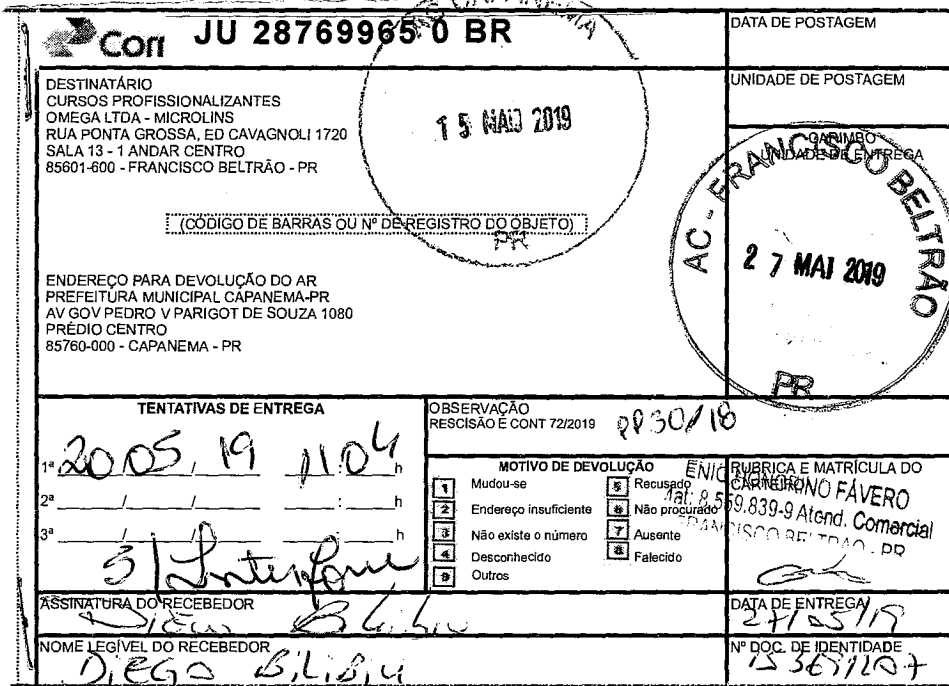 JU 28769965 0 BR
DATA DE POSTAGEM
DESTINATÁRIO
CURSOS PROFISSIONALIZANTES
OMEGA LTDA - MICROLINS
RUA PONTA GROSSA, ED CAVAGNOLI 1720
SALA 13 - 1 ANDAR CENTRO
85601-600 - FRANCISCO BELTRÃO - PR
15 MAIO 2019
PR
UNIDADE DE POSTAGEM
CARIMBO
UNIDADE DE ENTREGA
AC - FRANCISCO BELTRÃO
27 MAI 2019
PR
(CÓDIGO DE BARRAS OU Nº DE REGISTRO DO OBJETO)
ENDEREÇO PARA DEVOLUÇÃO DO AR
PREFEITURA MUNICIPAL CAPANEMA-PR
AV GOV PEDRO V PARIGOT DE SOUZA 1080
PRÉDIO CENTRO
85760-000 - CAPANEMA - PR
TENTATIVAS DE ENTREGA
1ª 20/05/19 11:04 h
2ª ___/___/___ ___:___h
3ª ___/___/___ ___h
S/ Interfone
OBSERVAÇÃO
RESCISÃO E CONT 72/2019 PP30/18
MOTIVO DE DEVOLUÇÃO
1 Mudou-se
2 Endereço insuficiente
3 Não existe o número
4 Desconhecido
9 Outros
5 Recusado
6 Não procurado
7 Ausente
8 Falecido
RUBRICA E MATRÍCULA DO
CARTEIRO
FÁVERO
Mat: 8.559.839-9 Atend. Comercial
FRANCISCO BELTRAO - PR
ASSINATURA DO RECEBEDOR
DATA DE ENTREGA
27/05/19
NOME LEGÍVEL DO RECEBEDOR
DIEGO BILIBIU
Nº DOC. DE IDENTIDADE